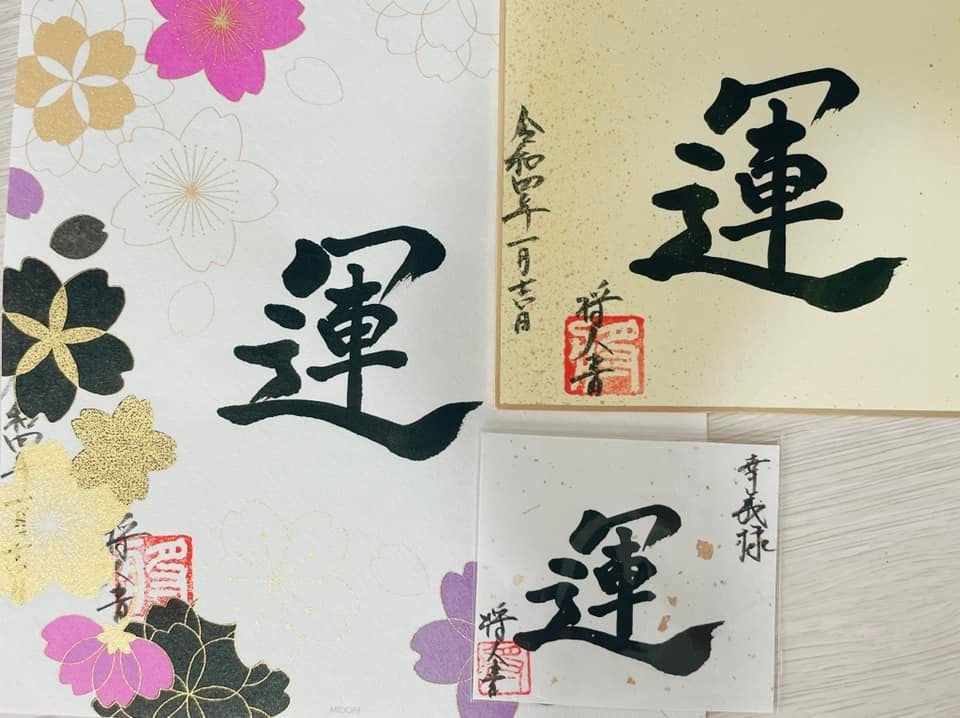 運
令和四年一月吉日
将人書
運
和四
将人書
幸義様
運
将人書
MIDORI